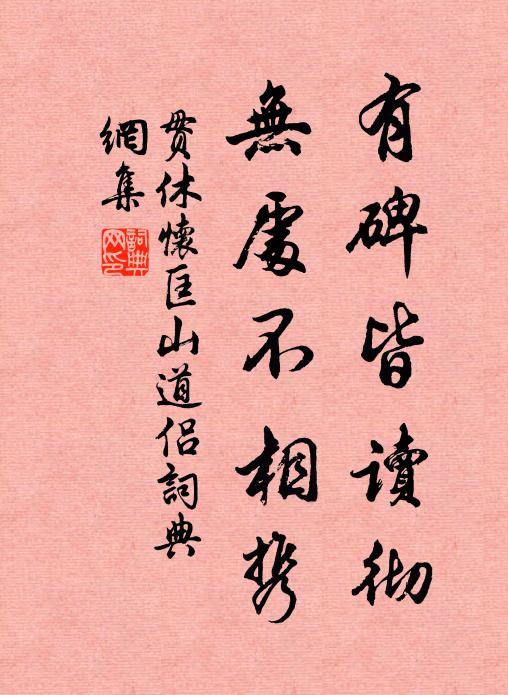 有碑皆讀彻
無處不相携
贯休懷匡山道侣詞典
網集
詞典網印